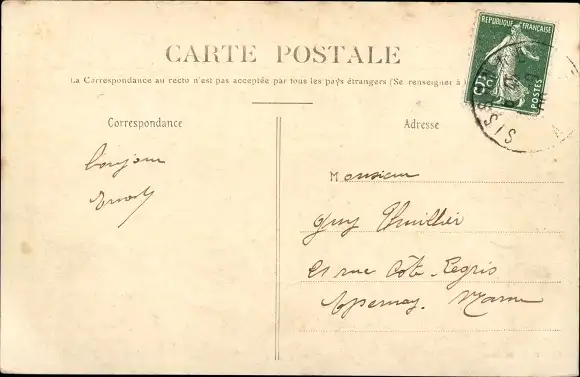 CARTE POSTALE
La Correspondance au recto n'est pas acceptée par tous les pays étrangers (Se renseigner à
REPUBLIQUE FRANÇAISE
5c
POSTES
Correspondance
Adresse
bonjour
Monsieur
Guy Thuillier
21 rue Côte-Legris
Epernay. Marne